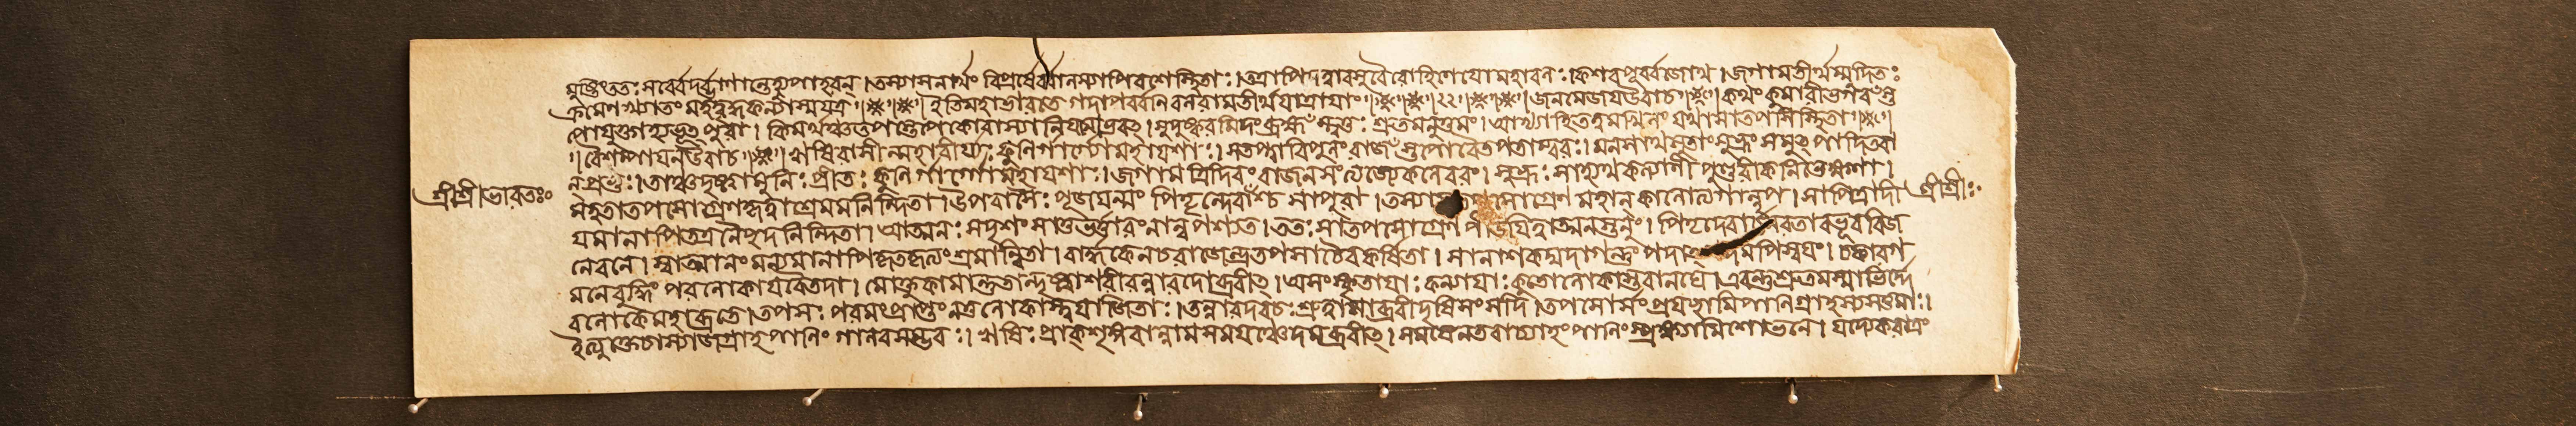 মুষ্টিং ততঃ সর্ব্বে দর্ভাণান্তেহ্যুপাহরন্। তস্যাসনার্থং বিপ্রর্ষের্ব্বানস্যাপি বশে স্থিতাঃ। তত্রাপি দত্বা বসু বৈ রৌহিণেযো মহাবলঃ। কেশবপূর্ব্বজোথ। জগাম তীর্থম্মুদিতঃ
ক্রমেণ খ্যাতং মহদ্বৃদ্ধকন্যাস্ম যত্র। ইতি মহাভারতে গদাপর্ব্বনি বলরামতীর্থযাত্রাযাং। ২২। জনমেজয উবাচ। কথং কুমারী ভগবঁস্ত
পোযুক্তাহ্যভূৎ পুরা। কিমর্থঞ্চ তপস্তেপে কোবাস্যানিযমোভবৎ। সুদুষ্করমিদং ব্রহ্মঁস্ত্বত্তঃ শ্রুতমনুত্তমং। আখ্যাহি তত্বমখিলং যথা সা তপসি স্থিতা
বৈশম্পাযন উবাচ। ঋষিরাসীন্মহাবীর্য্যঃ কুনির্গার্গ্যো মহাযশাঃ। স তপ্ত্বা বিপুলং রাজঁস্তপো বৈ তপতাম্বরঃ। মনসাথ সুতাং সুভ্রুং সমুৎপাদিতবা
ন প্রভুঃ। তাঞ্চ দৃষ্ট্বা মুনিঃ প্রীতঃ কুনির্গার্গ্যো মহাযশাঃ। জগাম ত্রিদিবং রাজন সংত্যজ্যেহ কলেবরং। সুভ্রূঃ সাহ্যথ কল্যাণী পুণ্ডরীকনিভেক্ষণা।
মহতা তপসোগ্রেণ কৃত্বাশ্রমমনিন্দিতা। উপবাসৈঃ পূজযন্তী পিতৃন্দেবাঁশ্চ সা পুরা। তস্যা সোগ্রেণ মহান্ কালোত্যগান্নৃপ। সা পিত্রা দী
যমানাপি তত্র নৈচ্ছদনিন্দিতা। আত্মনঃ সদৃশং সা তু ভর্ত্তারং নান্বপশ্যত। ততঃ সা তপসোগ্রেণ পীডযিত্বাত্মনস্তনুং। পিতৃদেবা রতা বভূব বিজ
নে বনে। সাত্মানং মন্যমানাপি কৃতকৃত্যং শ্রমান্বিতা। বার্দ্ধকেন চ রাজেন্দ্র তপসা চৈব কর্ষিতা। সা নাশকদ্যদা গন্তুং পদাৎ দমপি স্বযং। চকার গ
মনে বুদ্ধিং পরলোকায বৈ তদা। মোক্তুকামান্তু তান্দৃষ্ট্বা শরীরন্নারদোব্রবীৎ। অসংস্কৃতাযাঃ কন্যাযাঃ কুতো লোকাস্তবানঘে। এবন্তু শ্রুতমস্মাভির্দ্দে
বলোকে মহাব্রতে। তপসঃ পরমং প্রাপ্তং ন তু লোকাস্ত্বযা জিতাঃ। তন্নারদবচঃ শ্রুত্বা সাব্রবীদৃষিসংসদি। তপসোর্দ্ধং প্রযচ্ছামি পানিগ্রাহস্য সত্তমাঃ।
ইত্যুক্তে চাস্যা জগ্রাহ পানিং গালবসম্ভবঃ। ঋষিঃ প্রাক্ শৃঙ্গবান্নাম সমযঞ্চেদমব্রবীৎ। সমযেন তবাদ্যাহং পানিং স্প্রক্ষ্যামি শোভনে। যদ্যেকরাত্রং
শ্রীশ্রীভারতঃ
শ্রীশ্রীঃ